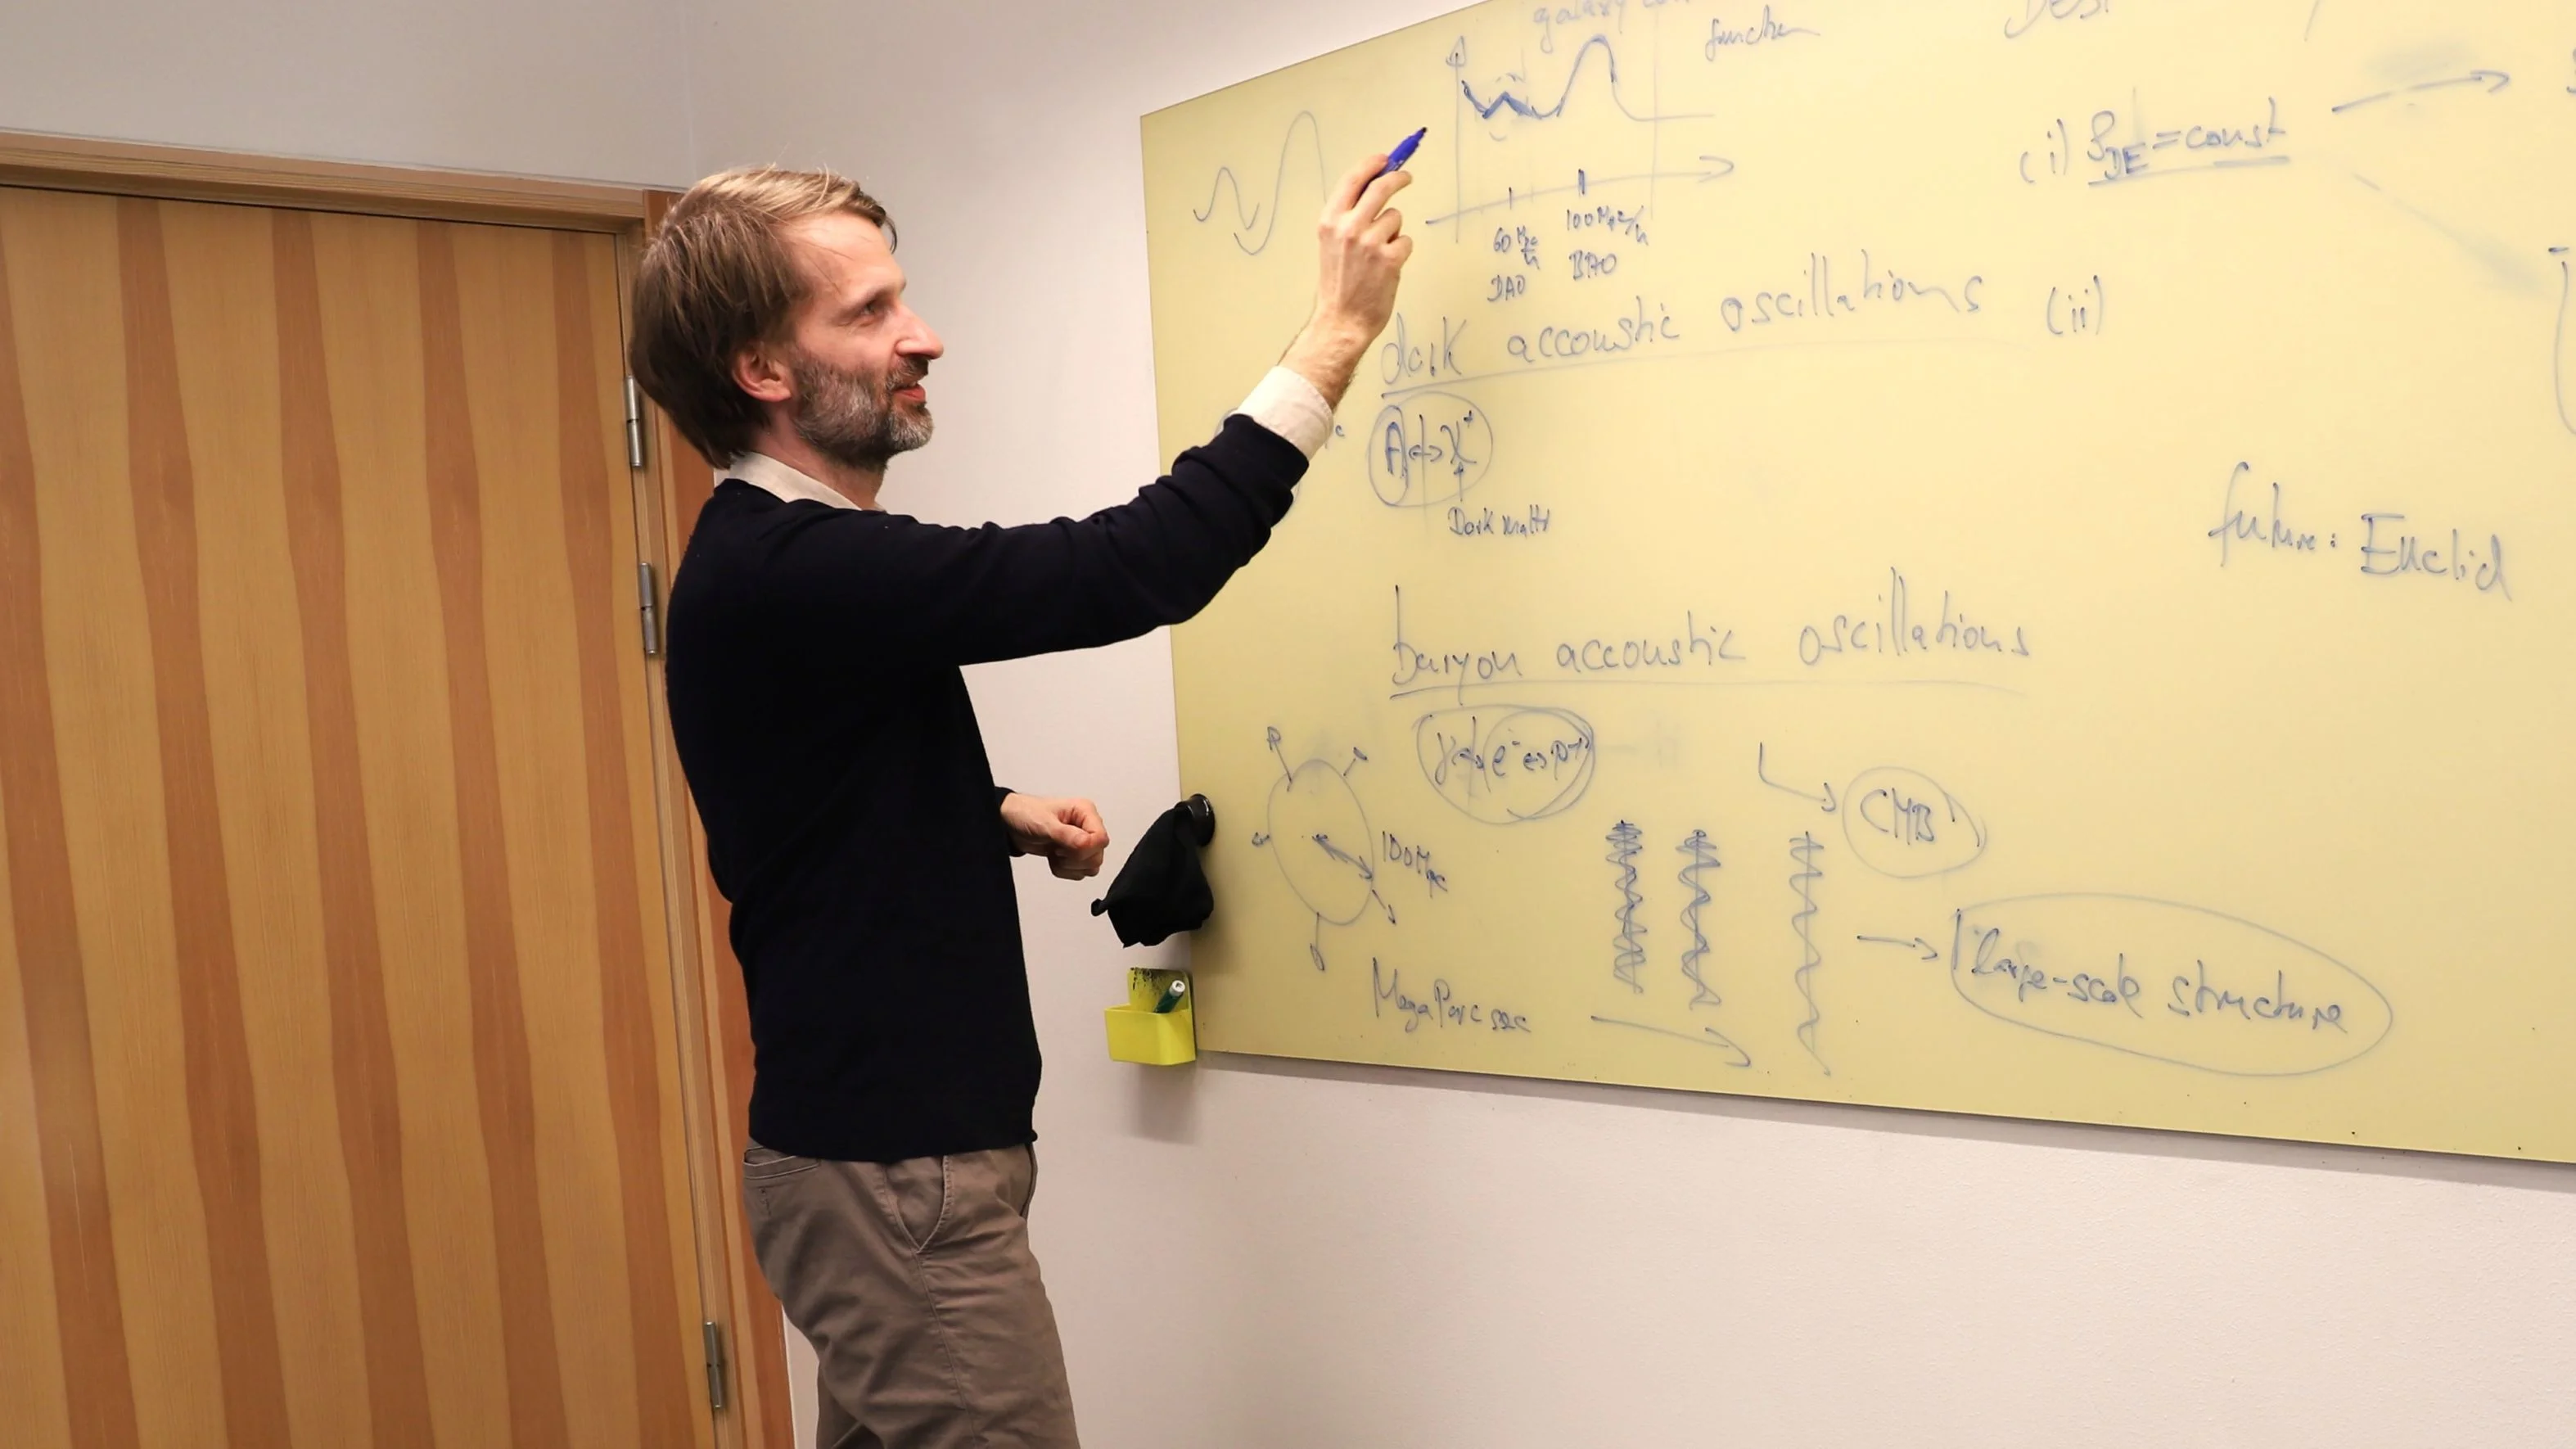 galaxy
function
(i) ρDE = const
60 Mpc/h
100 Mpc/h
DAO
BAO
dark accoustic oscillations
(ii)
Dark matter
future: Euclid
baryon accoustic oscillations
CMB
100 Mpc
MegaParcsec
large-scale structure